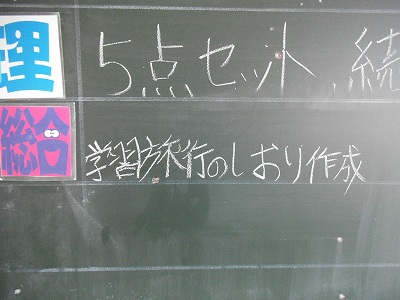 理 5点セット、続
総合 学習旅行のしおり作成